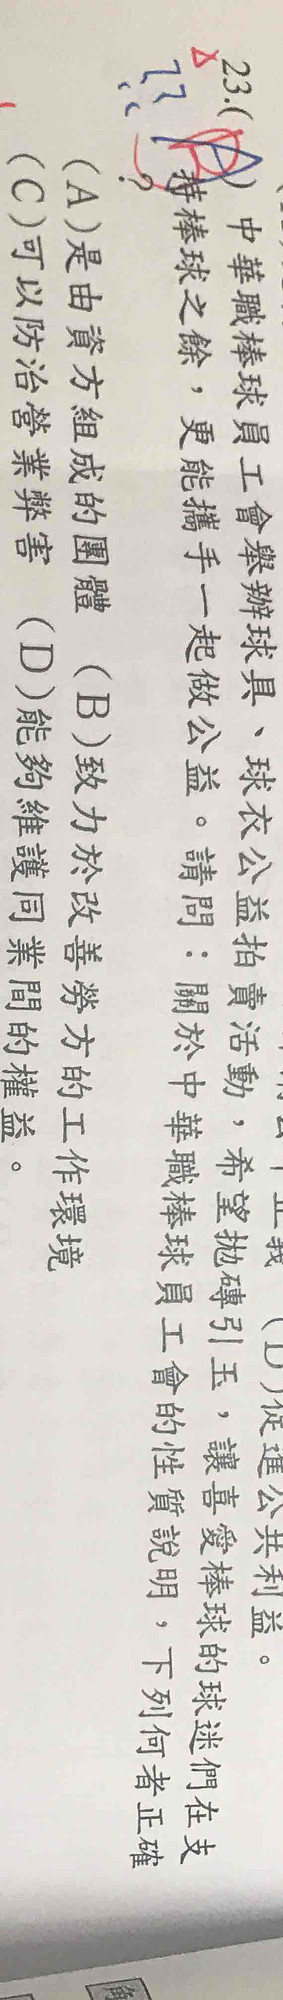 (D)促進公共利益。
23.( ) 中華職棒球員工會舉辦球具、球衣公益拍賣活動，希望拋磚引玉，讓喜愛棒球的球迷們在支
持棒球之餘，更能攜手一起做公益。請問：關於中華職棒球員工會的性質說明，下列何者正確
?
(A)是由資方組成的團體 (B)致力於改善勞方的工作環境
(C)可以防治營業弊害 (D)能夠維護同業間的權益。